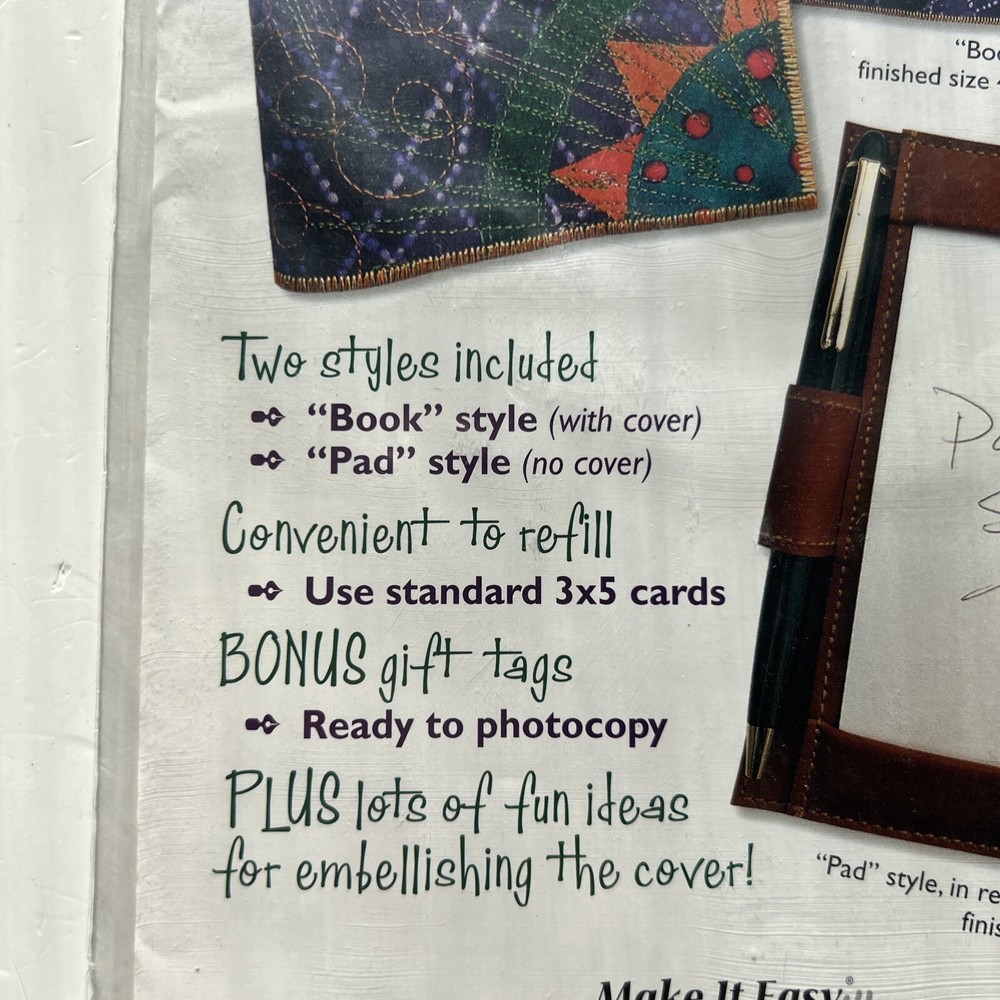 “Boo
finished size
Two styles included
“Book” style (with cover)
“Pad” style (no cover)
Convenient to refill
Use standard 3x5 cards
BONUS gift tags
Ready to photocopy
PLUS lots of fun ideas
for embellishing the cover!
“Pad” style, in re
finis
Make It Easy®